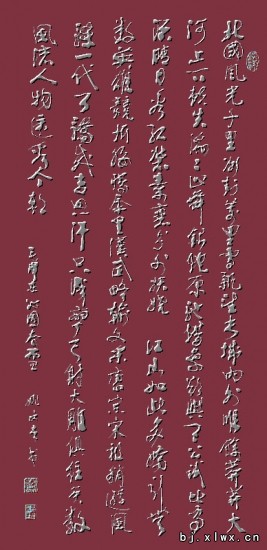 北國風光千里冰封萬里雪飄望長城內外惟餘莽莽大
河上下頓失滔滔山舞銀蛇原馳蠟象欲與天公試比高
須晴日看紅裝素裹分外妖嬈江山如此多嬌引無
數英雄競折腰惜秦皇漢武略輸文采唐宗宋祖稍遜風
騷一代天驕成吉思汗只識彎弓射大雕俱往矣數
風流人物還看今朝 毛澤東沁園春雪
bj.xlwx.cn